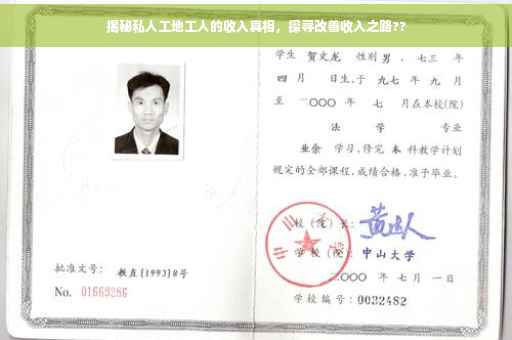 揭秘私人工地工人的收入真相，探寻改善收入之路??
学生 贺文龙 性别 男 、七三 年
四 月 日生,于 九七 年 九 月
至 二〇〇〇 年 七 月在本校(院)
法 学 专业
业余 学习,修完 本 科教学计划
规定的全部课程,成绩合格,准予毕业。
校(院)长:
学校(院): 中山大学
二〇〇〇 年 七 月 一 日
学校编号: 0032482
批准文号: 教直[1993]8号
No. 01669286